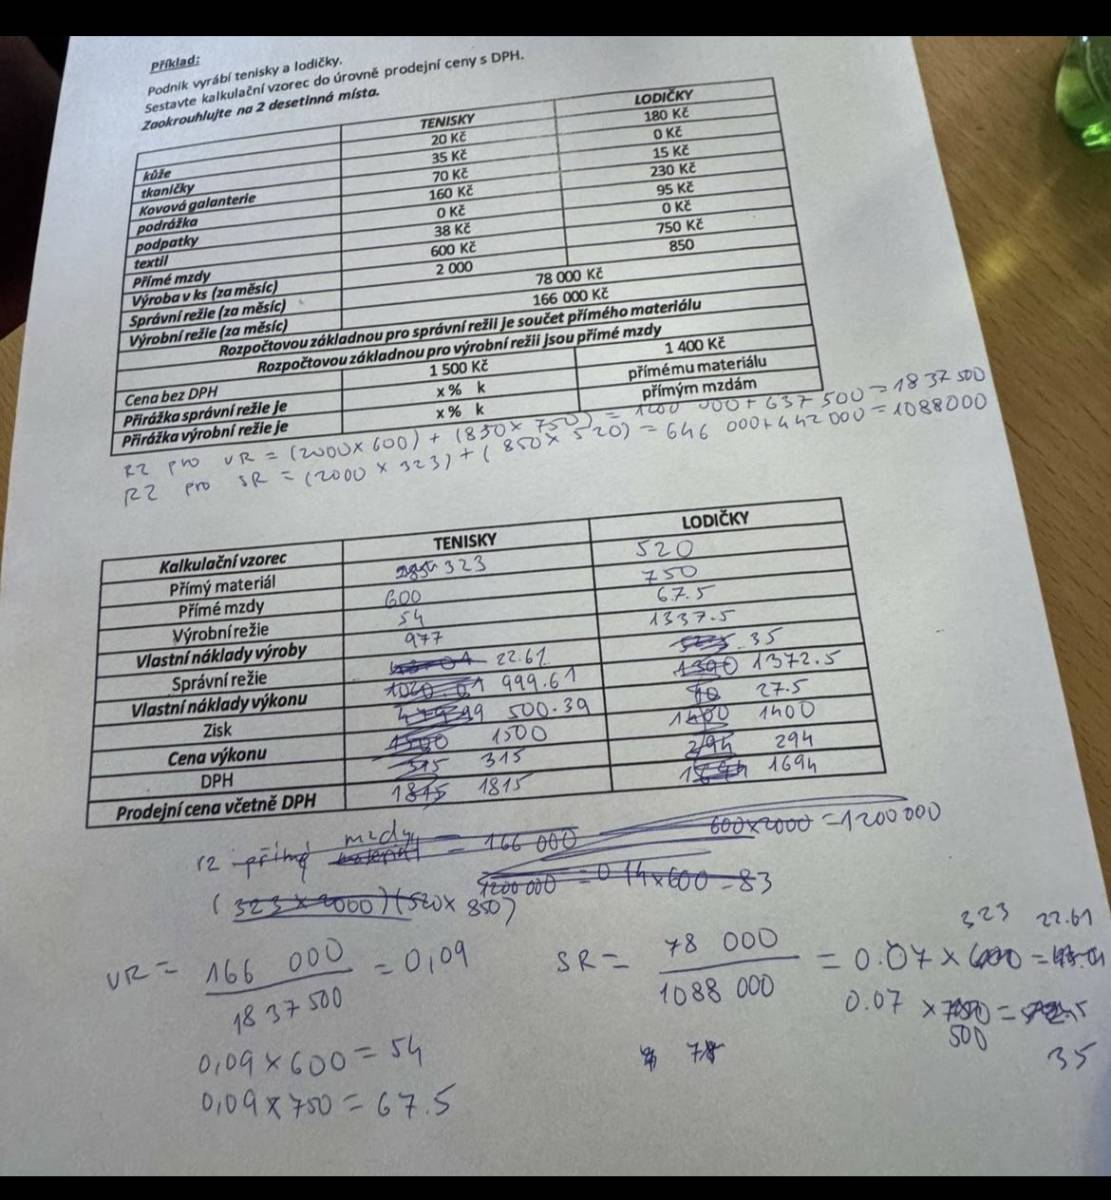 Příklad:
Podnik vyrábí tenisky a lodičky.
Sestavte kalkulační vzorec do úrovně prodejní ceny s DPH.
Zaokrouhlujte na 2 desetinná místa.
TENISKY LODIČKY
kůže 20 Kč 180 Kč
tkaničky 35 Kč 0 Kč
Kovová galanterie 70 Kč 15 Kč
podrážka 160 Kč 230 Kč
podpatky 0 Kč 95 Kč
textil 38 Kč 0 Kč
Přímé mzdy 600 Kč 750 Kč
Výroba v ks (za měsíc) 2 000 850
Správní režie (za měsíc) 78 000 Kč
Výrobní režie (za měsíc) 166 000 Kč
Rozpočtovou základnou pro správní režii je součet přímého materiálu
Rozpočtovou základnou pro výrobní režii jsou přímé mzdy
Cena bez DPH 1 500 Kč 1 400 Kč
Přirážka správní režie je x % k přímému materiálu
Přirážka výrobní režie je x % k přímým mzdám
RZ pro VR = (2000 x 600) + (850 x 750) = 1200 000 + 637 500 = 1837 500
RZ pro SR = (2000 x 323) + (850 x 520) = 646 000 + 442 000 = 1088000
Kalkulační vzorec TENISKY LODIČKY
Přímý materiál 323 520
Přímé mzdy 600 750
Výrobní režie 54 67.5
Vlastní náklady výroby 977 1337.5
Správní režie 22.61 35
Vlastní náklady výkonu 1020.01 999.61 1390 1372.5
Zisk 500.39 10 27.5
Cena výkonu 1500 1500 1400 1400
DPH 315 315 294 294
Prodejní cena včetně DPH 1815 1815 1694 1694
rz přímé mzdy materiál = 166 000 600x2000 = 1200 000
1200 000 = 0.14x600 = 83
(323 x 2000)(520x 850)
VR = 166 000 / 1837 500 = 0,09
SR = 78 000 / 1088 000 = 0.07 x 600 323 = 22.61
0,09 x 600 = 54
0.07 x 750 500 = 35
0,09 x 750 = 67.5